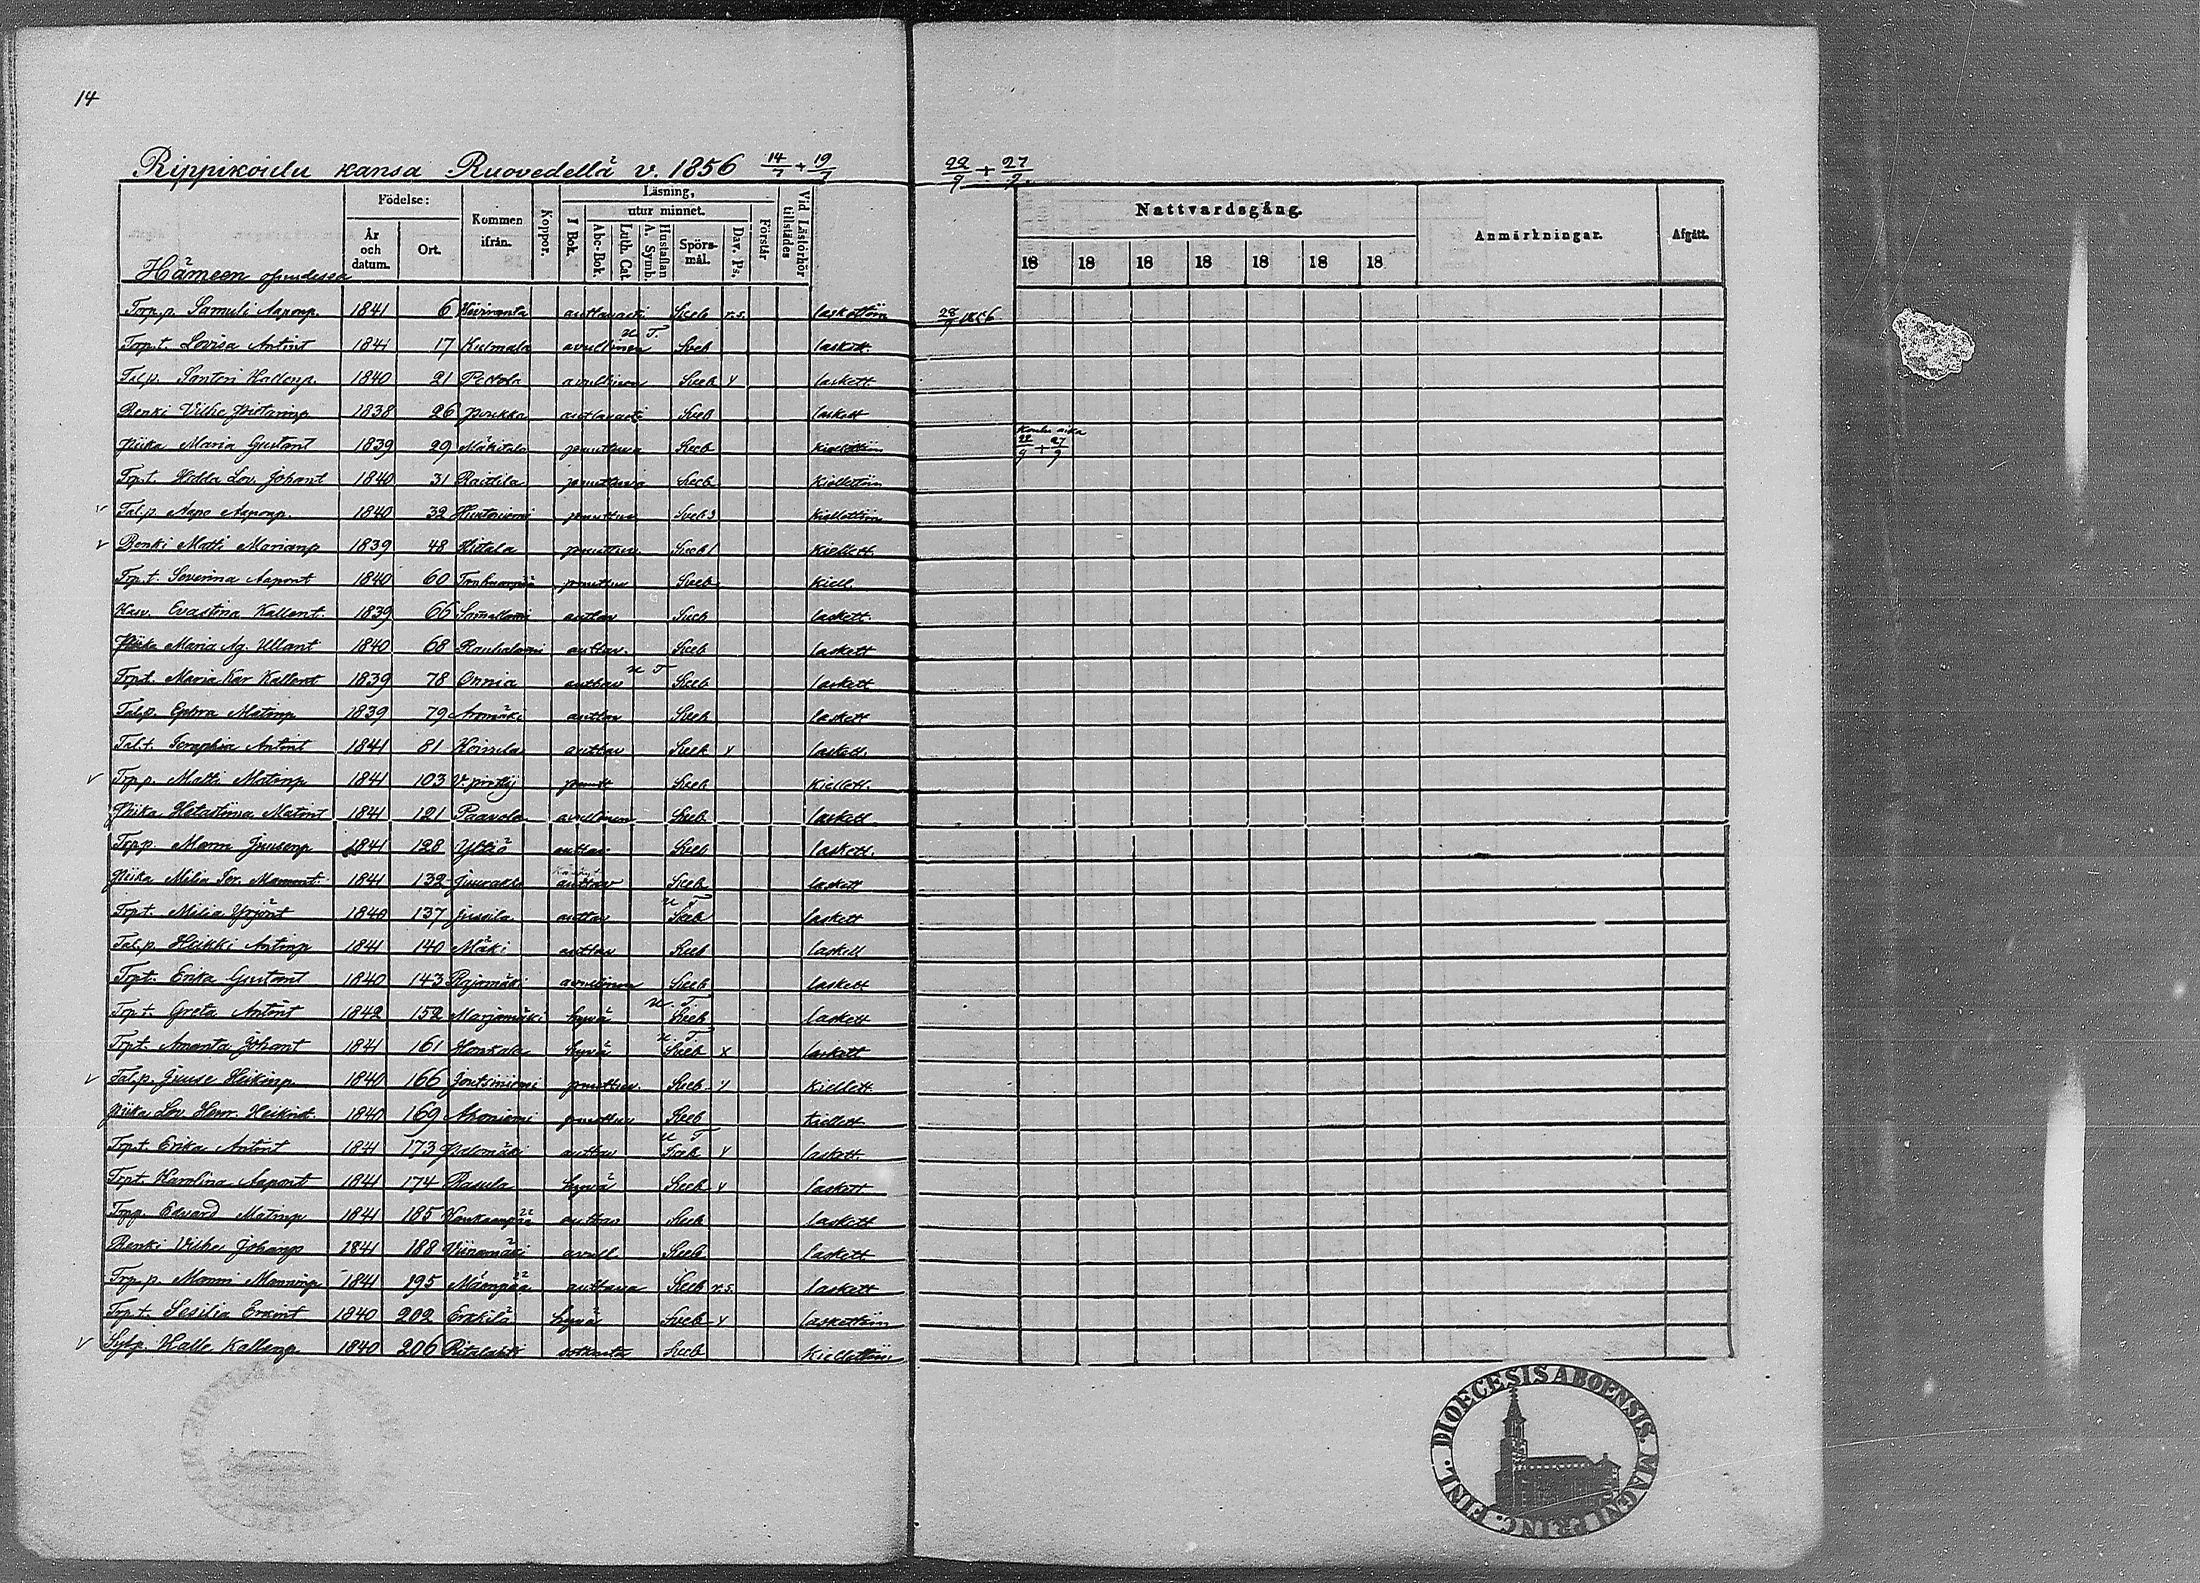 14
Rippikoulu kansa Ruovedellä v. 1856 14/7 + 19/7
22/9 + 27/9
Födelse:
År och datum.
Ort.
Kommen ifrån.
Koppor.
Läsning,
utur minnet.
I Bok.
Abc-Bok.
Luth. Cat.
Hustaflan A. Symb.
Spörsmål.
Dav. Ps.
Förstår
Vid Läsförhör tillstädes
Nattvardsgång.
18 18 18 18 18 18 18
Anmärkningar.
Afgått.
Hämeen
Trp.p. Samuli Aaponp. 1841 6 auttavasti Sveb r.s. laskettiin 28/9 1856
Trp.t. Lovisa Antint 1841 17 Kulmala avullinen u T Sveb laskett.
Tal.p. Santeri Kallenp. 1840 21 Pekkola avullinen Sveb y laskett.
Renki Vilhe 1838 26 auttavasti Sveb laskett
Piika Maria Gustant 1839 29 Mäkitalo puuttuva Sveb kiellettiin 22/9 + 27/9
Trp.t. Hedda Lov. Johant 1840 31 Raitila puuttuva Sveb kiellettiin
Tal.p. Aapo Aaponp. 1840 32 puuttuv Sveb kiellettiin
Renki Matti Marianp 1839 48 puuttuv Sveb kiellett.
Trp.t. Severina Aapont 1840 60 puuttuv Sveb kiell.
Evastina Kallent. 1839 66 auttav Sveb laskett.
Piika Maria Ag. Ullant 1840 68 Rauhalami auttav. Sveb laskett
Trp.t. Maria Kar Kallent 1839 78 Onnia auttav u T Sveb laskett
Tal.p. Matinp 1839 79 auttav Sveb laskett
Tal.t. Antint 1841 81 Koivula auttav Sveb y laskett.
Trp.p. Matti Matinp 1841 103 puutt Sveb kiellett.
Piika Matint 1841 121 Paavola avullinen Sveb laskett
Trp.p. Manni Juusenp 1841 128 Yltiö auttav Sveb laskett.
Piika Milia Ser. Mannint. 1841 132 auttav Sveb laskett
Trp.t. Milia Yrjönt 1840 137 Jussila auttav u T Sveb laskett
Tal.p Heikki Antinp 1841 140 Mäki auttav Sveb laskett
Trp.t. Erika Gustant 1840 143 Rajamäki avullinen Sveb laskett
Trp.t. Greta Antint 1842 152 Marjamäki hyvä u T. Sveb laskett
Trp.t. Amanta Johant 1841 161 Honkala hyvä u T. Sveb x laskett
Tal.p. Juuse Heikinp. 1840 166 puuttuv. Sveb y kiellett.
Piika Lov. Henr. Heikint. 1840 169 Ahoniemi puuttuv Sveb kiellett
Trp.t. Erika Antint 1841 173 auttav u T Sveb y laskett.
Trp.t. Karolina Aapont 1841 174 Rasula hyvä Sveb y laskett
Trp.p. Edvard Matinp 1841 185 auttav Sveb laskett
Renki Vilhe Johanp 1841 188 Viinamäki avull. Sveb laskett
Trp.p. Manni Manninp 1841 195 auttava Sveb r.s. laskett
Trp.t. Sesilia Erkint 1840 202 Erkkilä hyvä Sveb y laskettiin
Kalle Kallenp 1840 206 Ritalahti Sveb kiellettiin
DIOECESIS ABOENSIS. MAGNI PRINC. FINL.